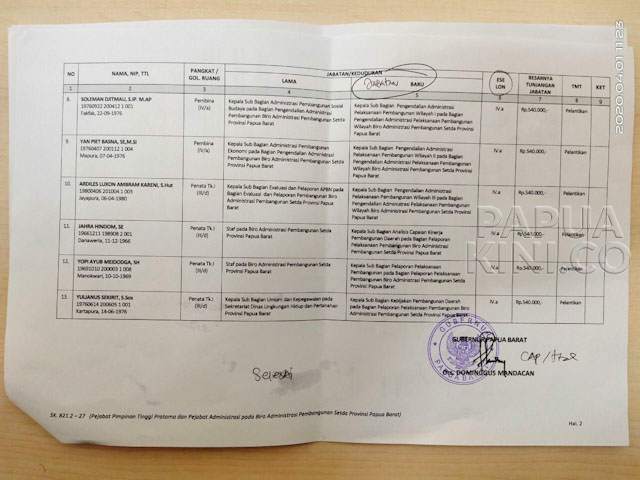 NO NAMA, NIP, TTL PANGKAT / GOL. RUANG JABATAN/KEDUDUKAN ESE LON BESARNYA TUNJANGAN JABATAN TMT KET
LAMA Jabatan BARU
1 2 3 4 5 6 7 8 9
8. SOLEMAN DJITMAU, S.IP. M.AP
19760922 200412 1 001
Fakfak, 22-09-1976
Pembina
(IV/a)
Kepala Sub Bagian Administrasi Pembangunan Sosial
Budaya pada Bagian Pengendalian Administrasi
Pembangunan Biro Administrasi Pembangunan Setda
Provinsi Papua Barat
Kepala Sub Bagian Pengendalian Administrasi
Pelaksanaan Pembangunan Wilayah I pada Bagian
Pengendalian Administrasi Pelaksanaan
Pembangunan Biro Administrasi Pembangunan Setda
Provinsi Papua Barat
IV.a
Rp.540.000,-
Pelantikan
9. YAN PIET BASNA, SE,M.SI
19760407 200112 1 004
Mapura, 07-04-1976
Pembina
(IV/a)
Kepala Sub Bagian Administrasi Pembangunan
Ekonomi pada Bagian Pengendalian Administrasi
Pembangunan Biro Administrasi Pembangunan Setda
Provinsi Papua Barat
Kepala Sub Bagian Pengendalian Administrasi
Pelaksanaan Pembangunan Wilayah II pada Bagian
Pengendalian Administrasi Pelaksanaan
Pembangunan Biro Administrasi Pembangunan Setda
Provinsi Papua Barat
IV.a
Rp.540.000,-
Pelantikan
10. ARDILES LUKON AMBRAM KARENI, S.Hut
19800406 201004 1 003
Jayapura, 06-04-1980
Penata Tk.I
(III/d)
Kepala Sub Bagian Evaluasi dan Pelaporan APBN pada
Bagian Evaluasi dan Pelaporan Administrasi
Pembangunan Biro Administrasi Pembangunan Setda
Provinsi Papua Barat
Kepala Sub Bagian Pengendalian Administrasi
Pelaksanaan Pembangunan Wilayah III pada Bagian
Pengendalian Administrasi Pelaksanaan
Pembangunan Biro Administrasi Pembangunan Setda
Provinsi Papua Barat
IV.a
Rp.540.000,-
Pelantikan
11. JAHRA HINDOM, SE
19661211 198908 2 001
Danaweria, 11-12-1966
Penata Tk.I
(III/d)
Staf pada Biro Administrasi Pembangunan Setda
Provinsi Papua Barat
Kepala Sub Bagian Analisis Capaian Kinerja
Pembangunan Daerah pada Bagian Pelaporan
Pelaksanaan Pembangunan Biro Administrasi
Pembangunan Setda Provinsi Papua Barat
IV.a
Rp.540.000,-
Pelantikan
12. YOPI AYUB MEIDODGA, SH
19691010 200003 1 008
Manokwari, 10-10-1969
Penata Tk.I
(III/d)
Staf pada Biro Administrasi Pembangunan Setda
Provinsi Papua Barat
Kepala Sub Bagian Pelaporan Pelaksanaan
Pembangunan pada Bagian Pelaporan Pelaksanaan
Pembangunan Biro Administrasi Pembangunan Setda
Provinsi Papua Barat
IV.a
Rp.540.000,-
Pelantikan
13. YULIANUS SEKIRIT, S.Sos
19760614 200605 1 001
Kartapura, 14-06-1976
Penata Tk.I
(III/d)
Kepala Sub Bagian Umum dan Kepegawaian pada
Sekretariat Dinas Lingkungan Hidup dan Pertanahan
Provinsi Papua Barat
Kepala Sub Bagian Kebijakan Pembangunan Daerah
pada Bagian Pelaporan Pelaksanaan Pembangunan
Biro Administrasi Pembangunan Setda Provinsi Papua
Barat
IV.a
Rp.540.000,-
Pelantikan
GUBERNUR PAPUA BARAT
GUBERNUR
PAPUA BARAT
CAP/ttd
Drs. DOMINGGUS MANDACAN
Selesai
SK. 821.2 – 27 (Pejabat Pimpinan Tinggi Pratama dan Pejabat Administrasi pada Biro Administrasi Pembangunan Setda Provinsi Papua Barat)
Hal. 2
PAPUA
KINI.CO